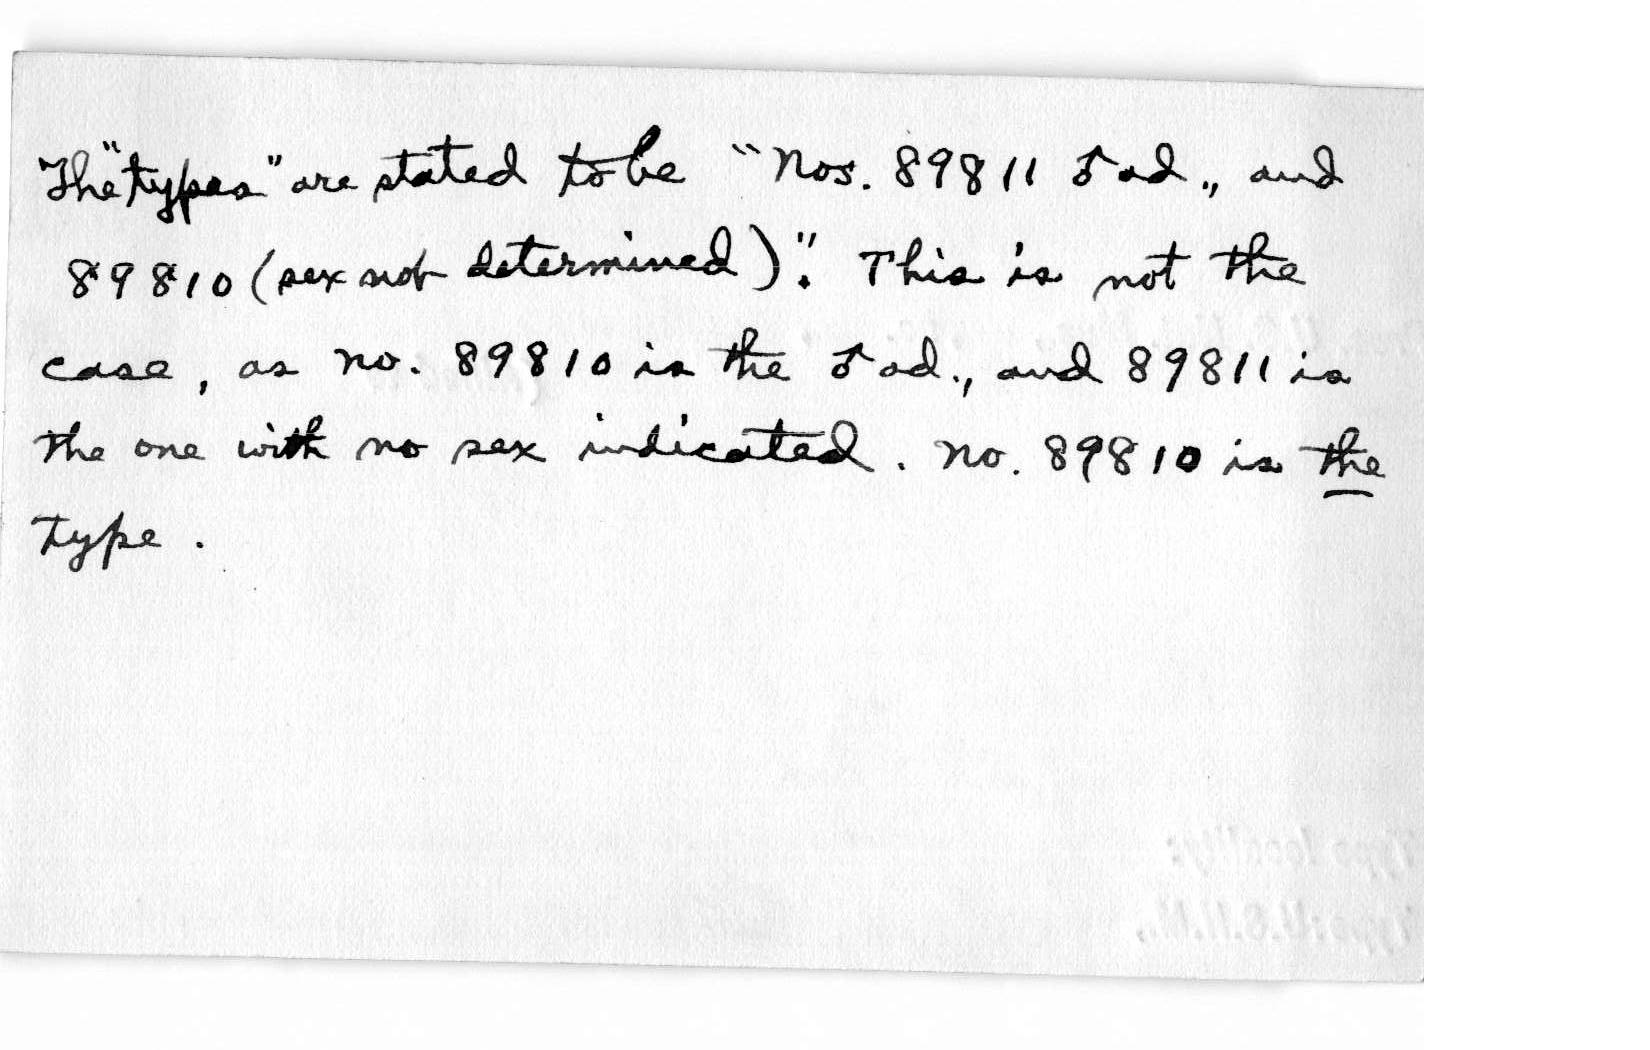 The "types" are stated to be "Nos. 89811 ♂ ad., and
89810 (sex not determined)". This is not the
case, as no. 89810 is the ♂ ad., and 89811 is
the one with no sex indicated. No. 89810 is the
type.